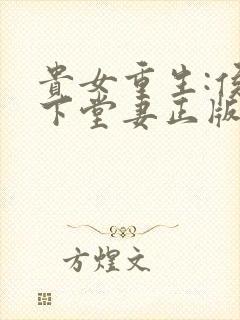 貴女重生:侯
下堂妻正版
方煌文